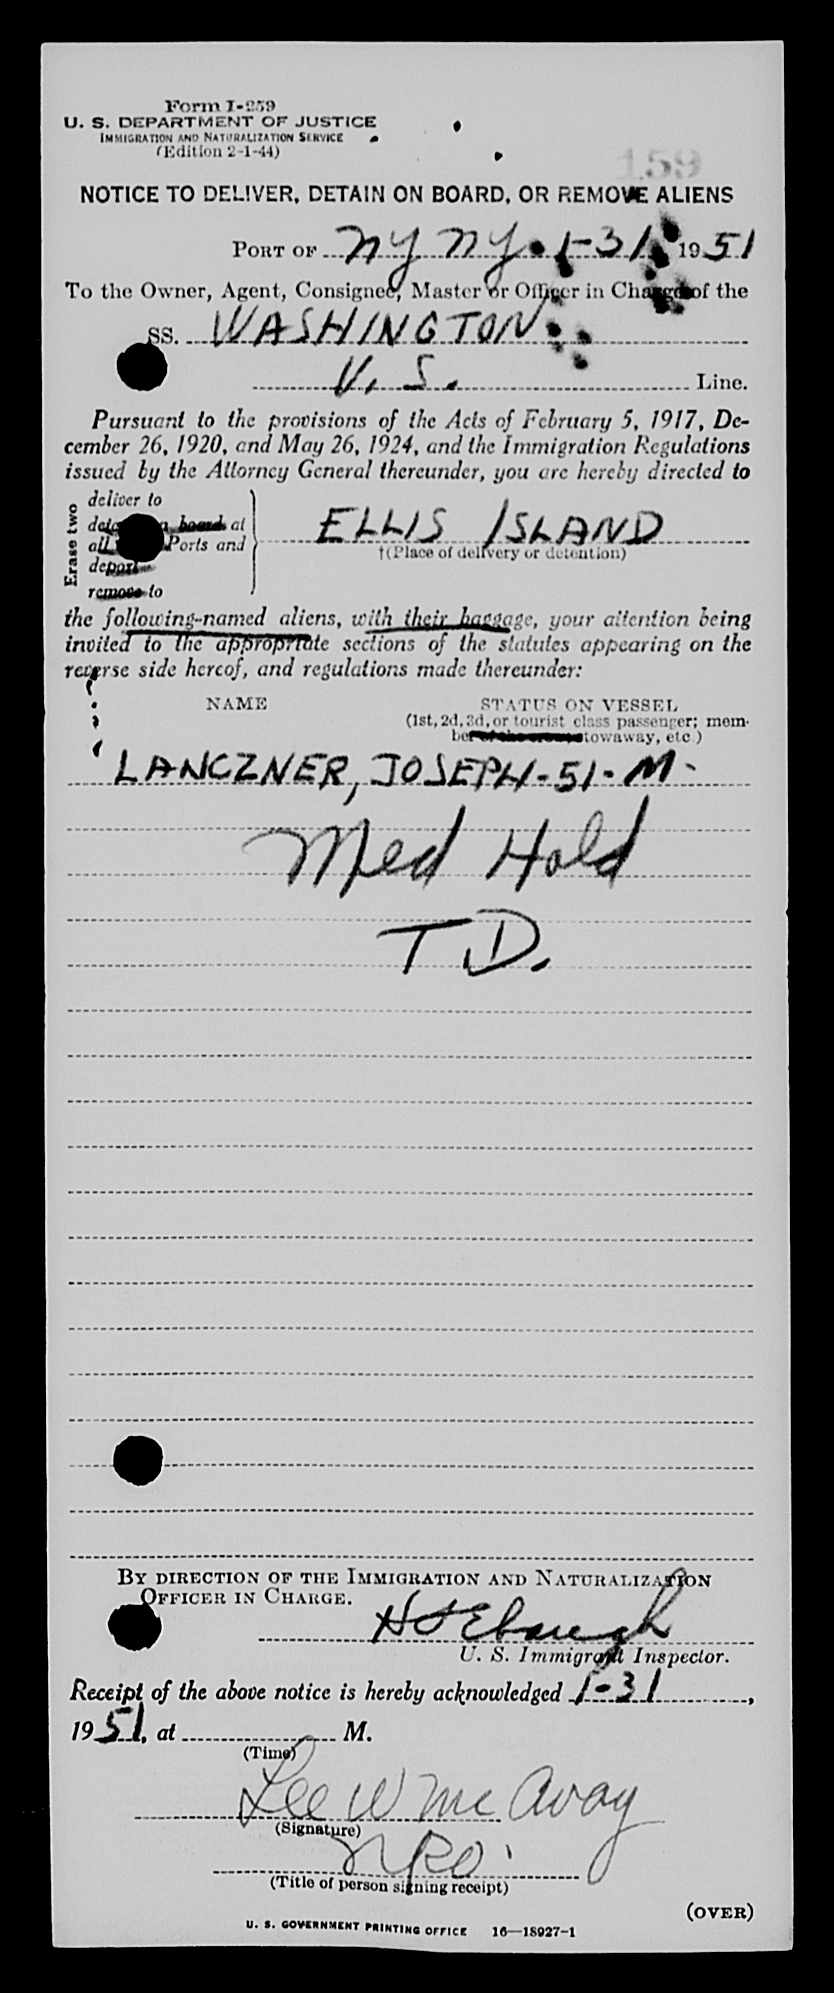 Form I-259
U. S. DEPARTMENT OF JUSTICE
IMMIGRATION AND NATURALIZATION SERVICE
(Edition 2-1-44)
159
NOTICE TO DELIVER, DETAIN ON BOARD, OR REMOVE ALIENS
PORT OF NY NY 1-31 1951
To the Owner, Agent, Consignee, Master or Officer in Charge of the
SS. WASHINGTON
U. S. Line.
Pursuant to the provisions of the Acts of February 5, 1917, De-
cember 26, 1920, and May 26, 1924, and the Immigration Regulations
issued by the Attorney General thereunder, you are hereby directed to
Erase two
deliver to
board at
all Ports and
deport
remove to
ELLIS ISLAND
†(Place of delivery or detention)
the following-named aliens, with their baggage, your attention being
invited to the appropriate sections of the statutes appearing on the
reverse side hereof, and regulations made thereunder:
NAME STATUS ON VESSEL
(1st, 2d, 3d, or tourist class passenger; mem-
ber of the crew, stowaway, etc.)
LANCZNER, JOSEPH - 51 - M -
Med Hold
T D.
BY DIRECTION OF THE IMMIGRATION AND NATURALIZATION
OFFICER IN CHARGE.
U. S. Immigrant Inspector.
Receipt of the above notice is hereby acknowledged 1-31,
1951, at M.
(Time)
Lee W McAvoy
(Signature)
(Title of person signing receipt)
(OVER)
U. S. GOVERNMENT PRINTING OFFICE 16—18927-1